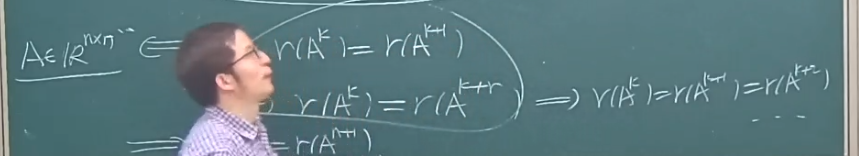 A∈ℝ^{n×n} ⟸ r(A^k) = r(A^{k+1})
r(A^k) = r(A^{k+r}) ⟹ r(A^k)=r(A^{k+1})=r(A^{k+2})
⟹ = r(A^{n+1}) ....